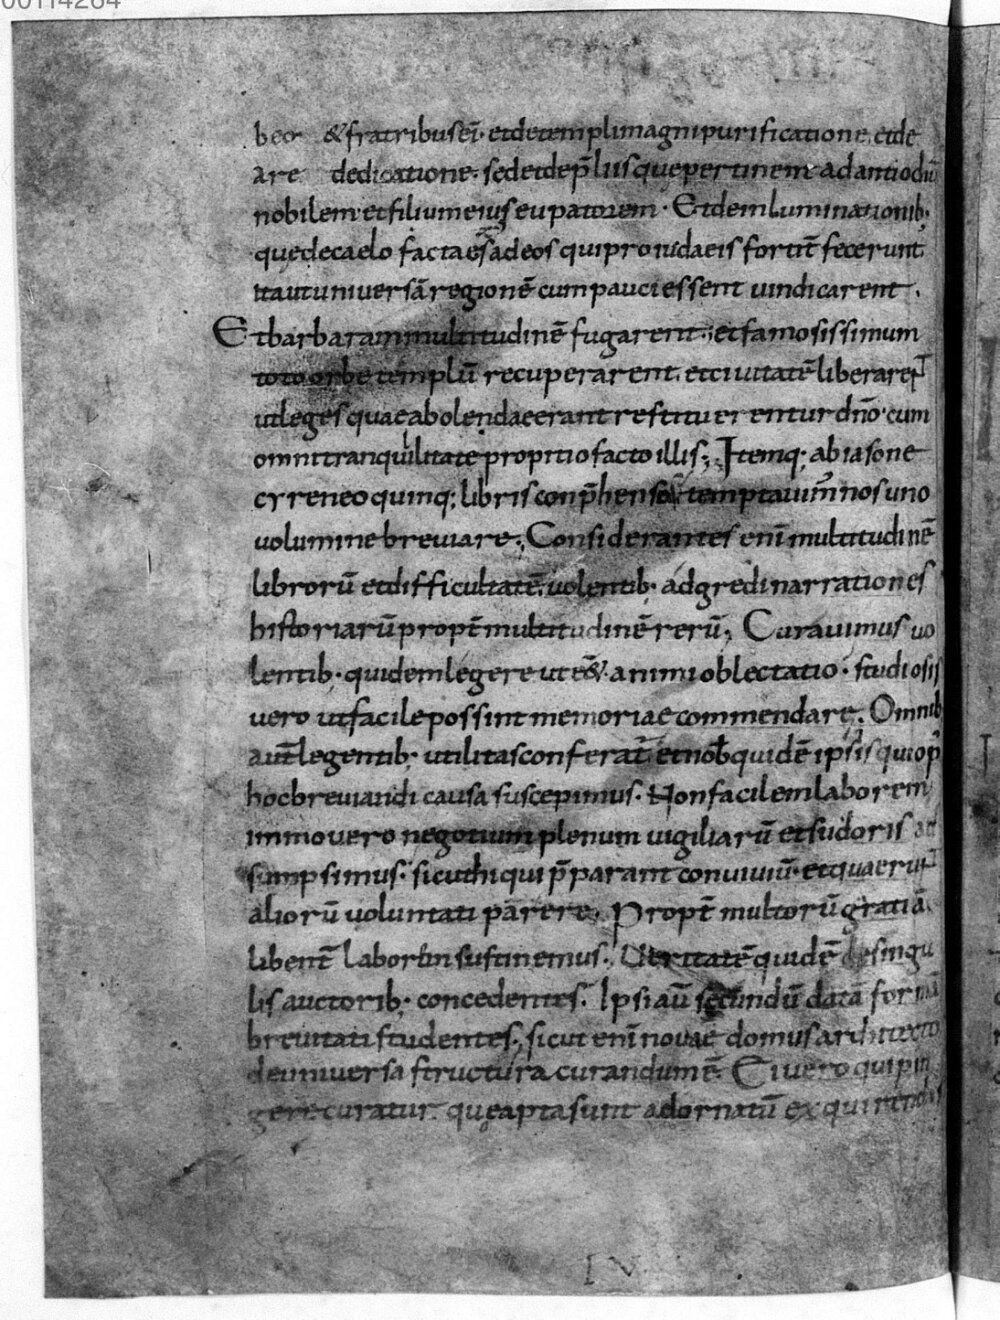 00114264
beo & fratribus ei̅· et de templi magni purificatione, et de
are dedicatione· sed et de p̅liis que pertinent ad antiochu̅
nobilem et filium eius eupatorem· Et de inluminationib;
quę de caelo factae s̅ ad eos qui pro iudaeis fortit̅ fecerunt
ita ut universa̅ regione̅ cum pauci essent uindicarent·
Et barbaram multitudine̅ fugarent· et famosissimum
toto orbe templu̅ recuperarent, et ciuitate̅ liberarent
ut leges quae abolendae erant restituerentur dn̅o· cum
omni tranquillitate propitio facto illis; Itemq; ab iasone
cyreneo quinq; libris conp̅hensa temptauim' nos uno
uolumine breuiare; Considerantes eni̅ multitudine̅
libroru̅ et difficultate̅ uolentib· adgredi narrationes
historiaru̅ propt̅ multitudine̅ reru̅; Curauimus uo
lentib· quidem legere ut e̅&̅ animi oblectatio· studiosis
uero ut facile possint memoriae commendare; Omnib
aut̅ legentib· utilitas conferat̅ et nob̅ quide̅ ipsis qui op̅
hoc breuiandi causa suscepimus· Non facilem laborem
immo uero negotium plenum uigiliaru̅ et sudoris as
sumpsimus· sicut hi qui p̅parant conuiuiu̅· et quaerunt
alioru̅ uoluntati parere· Propt̅ multoru̅ gratia̅
libent̅ laborem sustinemus· Ueritate̅ quide̅ de singu
lis auctorib; concedentes· Ipsi au̅ secundu̅ data̅ forma̅
breuitati studentes; sicut eni̅ novae domus architecto
de uniuersa structura curandum e̅· Ei uero qui pin
gere curatur· quę apta sunt ad ornatu̅ exquirenda s̅
IV